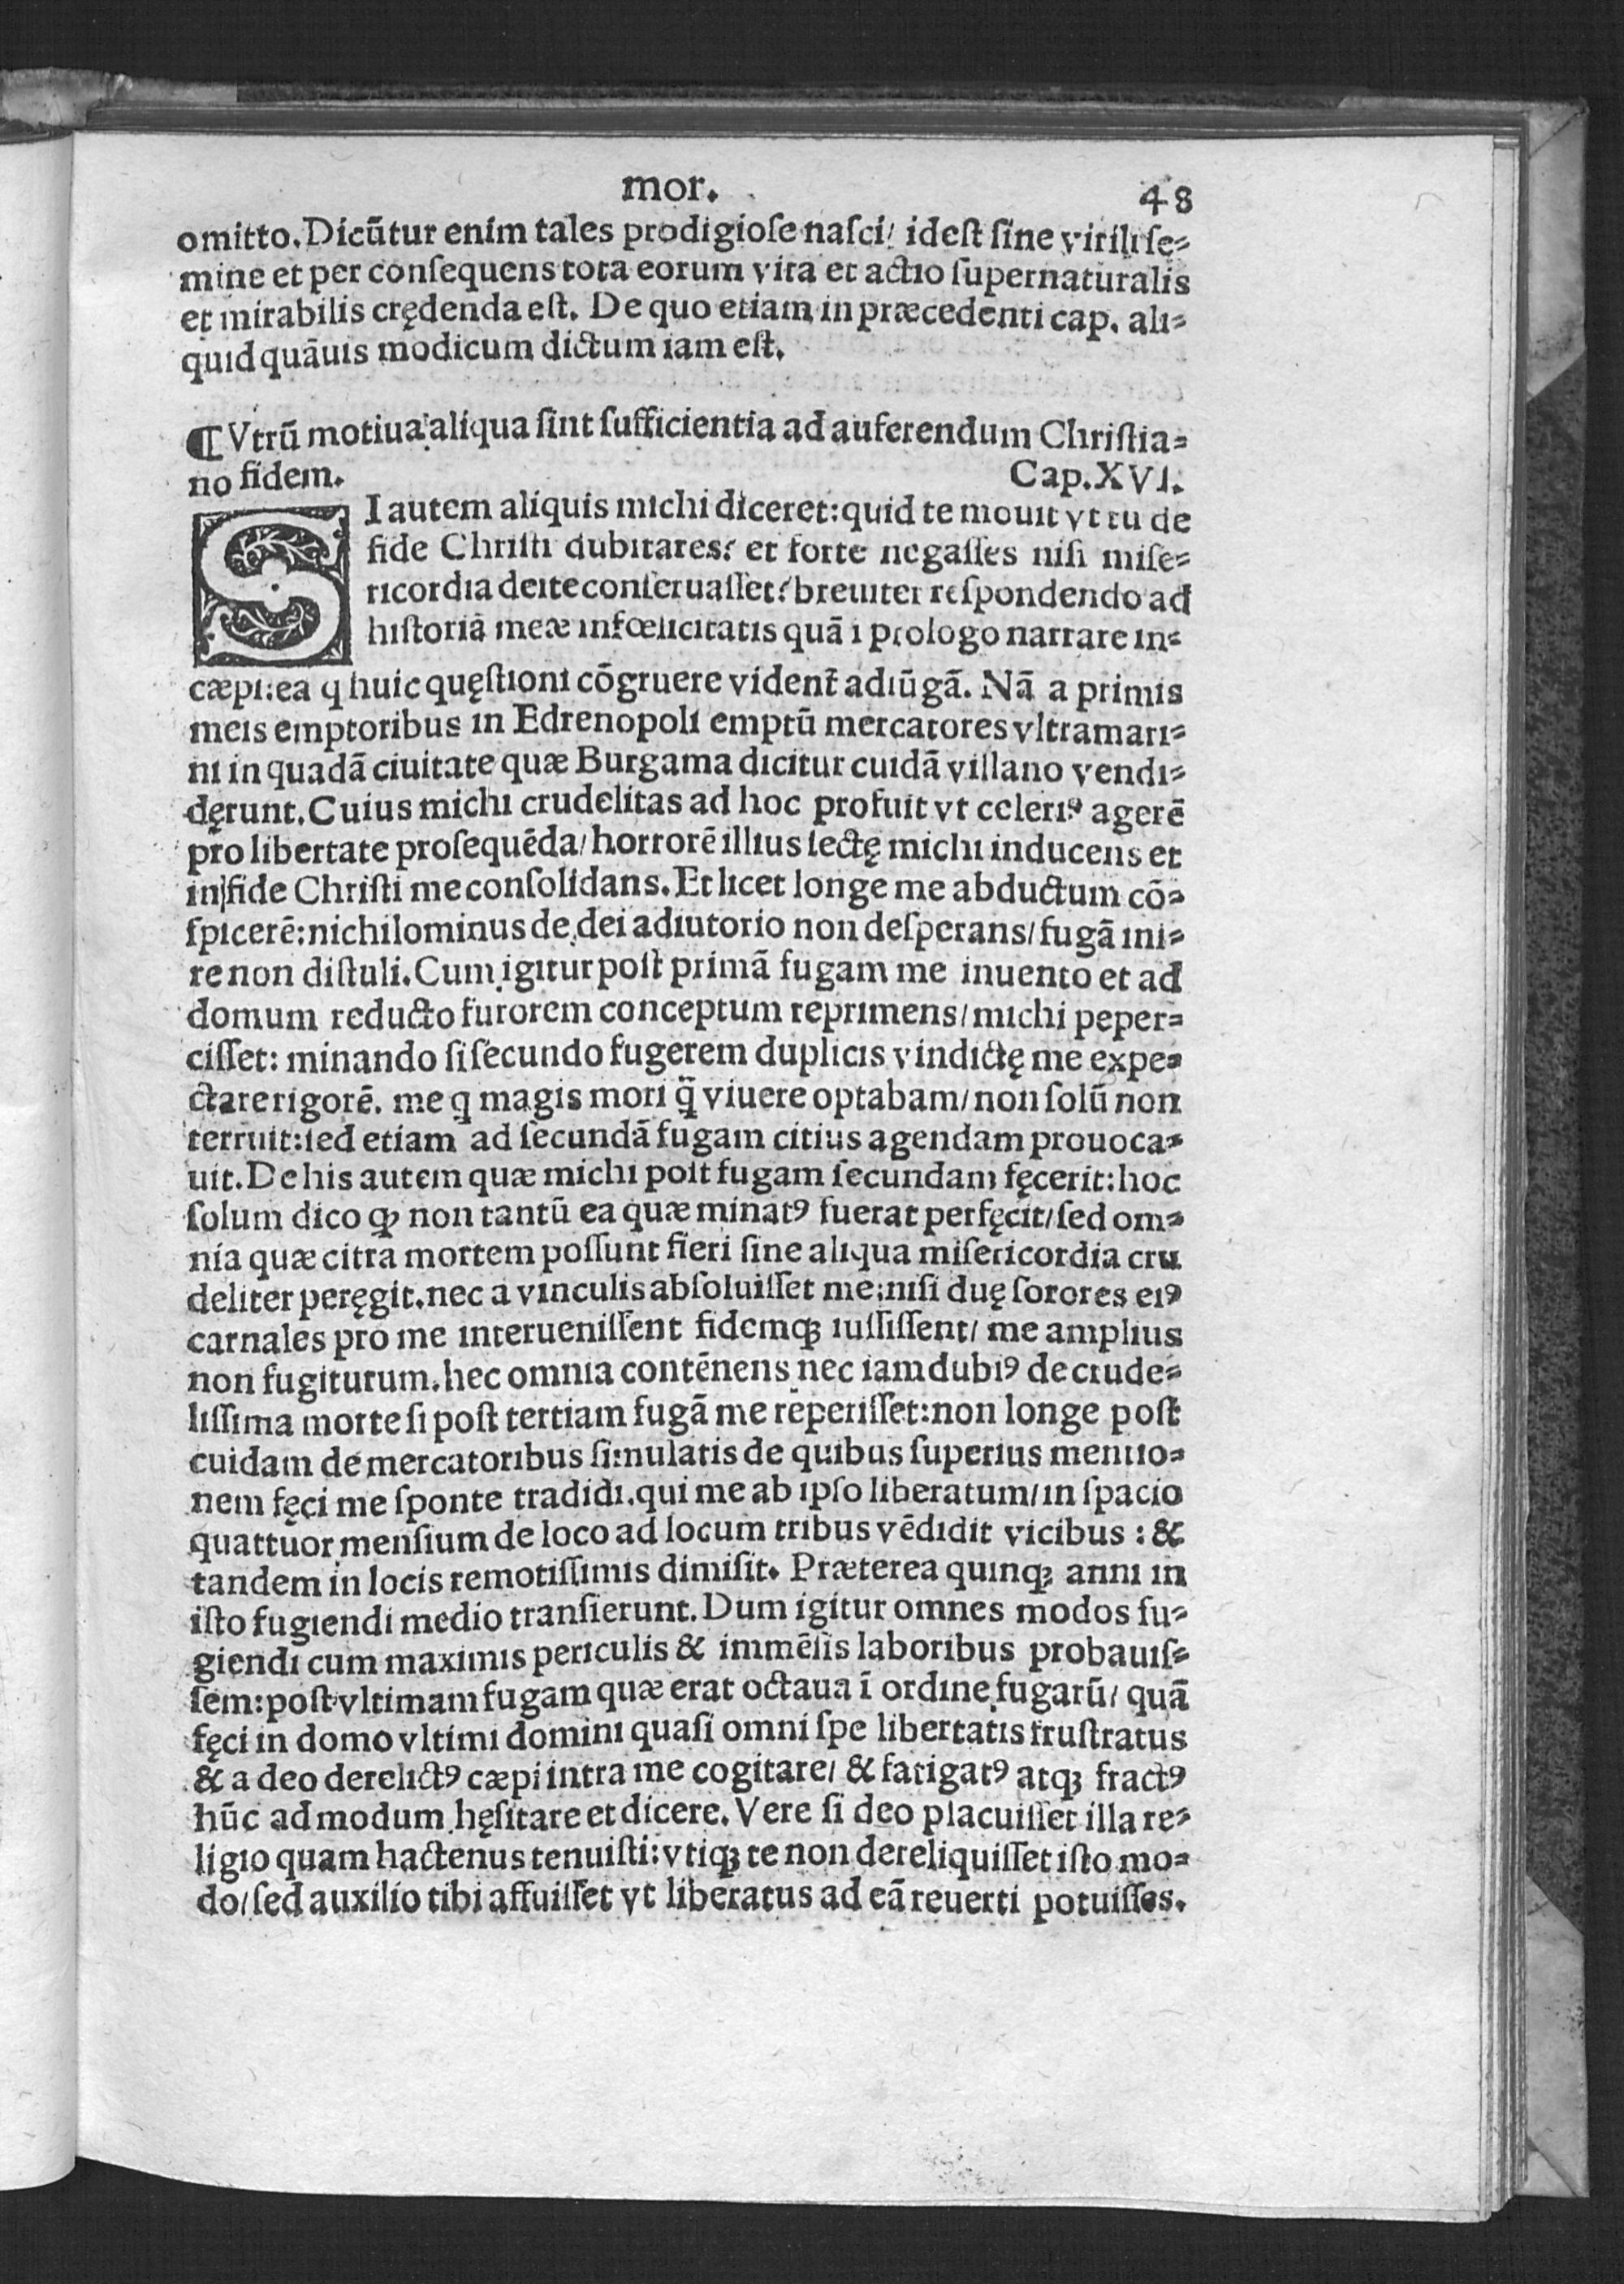 mor.
48
omitto. Dicūtur enim tales prodigioſe naſci/ ideſt ſine virili ſe⸗
mine et per conſequens tota eorum vita et actio ſupernaturalis
et mirabilis crędenda eſt. De quo etiam in præcedenti cap. ali⸗
quid quāuis modicum dictum iam eſt.
¶ Vtrū motiua aliqua ſint ſufficientia ad auferendum Chriſtia⸗
no fidem. Cap. XVI.
SI autem aliquis michi diceret: quid te mouit vt tu de
fide Chriſti dubitares? et forte negaſſes niſi miſe⸗
ricordia dei te conſeruaſſet? breuiter reſpondendo ad
hiſtoriā meæ infœlicitatis quā ī prologo narrare in⸗
cæpi: ea q huic quęſtioni cōgruere vident᷑ adiūgā. Nā a primis
meis emptoribus in Edrenopoli emptū mercatores vltramari⸗
ni in quadā ciuitate quæ Burgama dicitur cuidā villano vendi⸗
dęrunt. Cuius michi crudelitas ad hoc profuit vt celeriꝰ agerē
pro libertate proſequēda/ horrorē illius ſectę michi inducens et
in fide Chriſti me conſolidans. Et licet longe me abductum cō⸗
ſpicerē: nichilominus de dei adiutorio non deſperans/ fugā ini⸗
re non diſtuli. Cum igitur poſt primā fugam me inuento et ad
domum reducto furorem conceptum reprimens/ michi peper⸗
ciſſet: minando ſi ſecundo fugerem duplicis vindictę me expe⸗
ctare rigorē. me q magis mori q̄ viuere optabam/ non ſolū non
terruit: ſed etiam ad ſecundā fugam citius agendam prouoca⸗
uit. De his autem quæ michi poſt fugam ſecundam fęcerit: hoc
ſolum dico ꝙ non tantū ea quæ minatꝰ fuerat perfęcit/ ſed om⸗
nia quæ citra mortem poſſunt fieri ſine aliqua miſericordia cru
deliter peręgit. nec a vinculis abſoluiſſet me: niſi duę ſorores eiꝰ
carnales pro me interueniſſent fidemqꝫ iuſſiſſent/ me amplius
non fugiturum. hec omnia contēnens nec iam dubiꝰ de crude⸗
liſſima morte ſi poſt tertiam fugā me reperiſſet: non longe poſt
cuidam de mercatoribus ſimulatis de quibus ſuperius mentio⸗
nem fęci me ſponte tradidi. qui me ab ipſo liberatum/ in ſpacio
quattuor menſium de loco ad locum tribus vēdidit vicibus : &
tandem in locis remotiſſimis dimiſit. Præterea quinqꝫ anni in
iſto fugiendi medio tranſierunt. Dum igitur omnes modos fu⸗
giendi cum maximis periculis & immēſis laboribus probauiſ⸗
ſem: poſt vltimam fugam quæ erat octaua ī ordine fugarū/ quā
fęci in domo vltimi domini quaſi omni ſpe libertatis fruſtratus
& a deo derelictꝰ cæpi intra me cogitare/ & fatigatꝰ atqꝫ fractꝰ
hūc ad modum hęſitare et dicere. Vere ſi deo placuiſſet illa re⸗
ligio quam hactenus tenuiſti: vtiqꝫ te non dereliquiſſet iſto mo⸗
do/ ſed auxilio tibi affuiſſet vt liberatus ad eā reuerti potuiſſes.